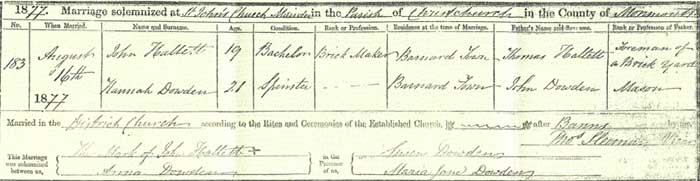 1877. Marriage solemnized at St John's Church Maindee in the Parish of Christchurch in the County of Monmouth
No. When Married. Name and Surname. Age. Condition. Rank or Profession. Residence at the time of Marriage. Father's Name and Surname. Rank or Profession of Father.
183 August 16th 1877 John Hallett 19 Bachelor Brick Maker Barnard Town Thomas Hallett Foreman of a Brick Yard
Hannah Dowden 21 Spinster Barnard Town John Dowden Mason
Married in the District Church according to the Rites and Ceremonies of the Established Church, after Banns by me,
Vicar
This Marriage was solemnized between us,
The Mark of John Hallett x
Anna Dowden
in the Presence of us,
Dowden
Maria Jane Dowden